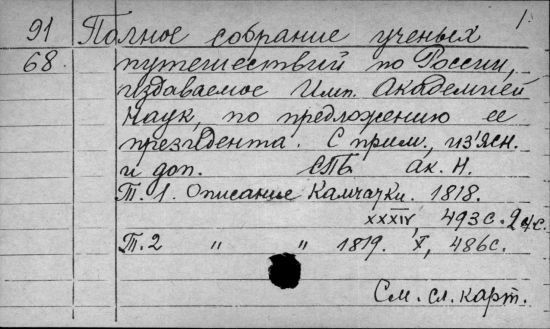 1.
91 Полное собрание ученых
68. путешествий по России,
издаваемое Имп. Академией
Наук, по предложению ее
президента. С прим., из'ясн.
и доп. СПБ ак. Н.
Т. 1. Описание Камчатки. 1818.
XXXIV, 493 с. 2 л.
Т. 2 " " 1819. X, 486 с.
См. сл. карт.